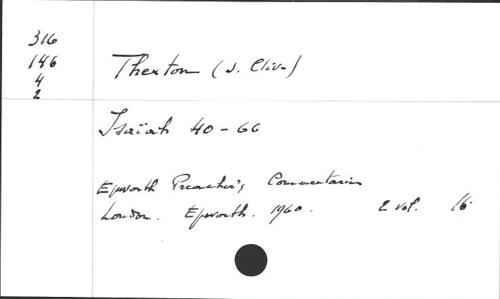 316
146
4
2
Thexton (S. Clive)
Isaïah 40-66
Epworth Preacher's Commentaries
London. Epworth. 1960. 2 vol. 16.